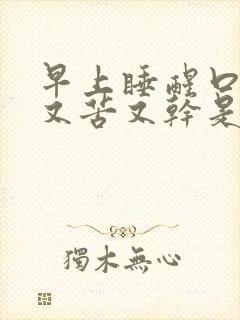 早上睡醒口
又苦又幹是
獨木無心